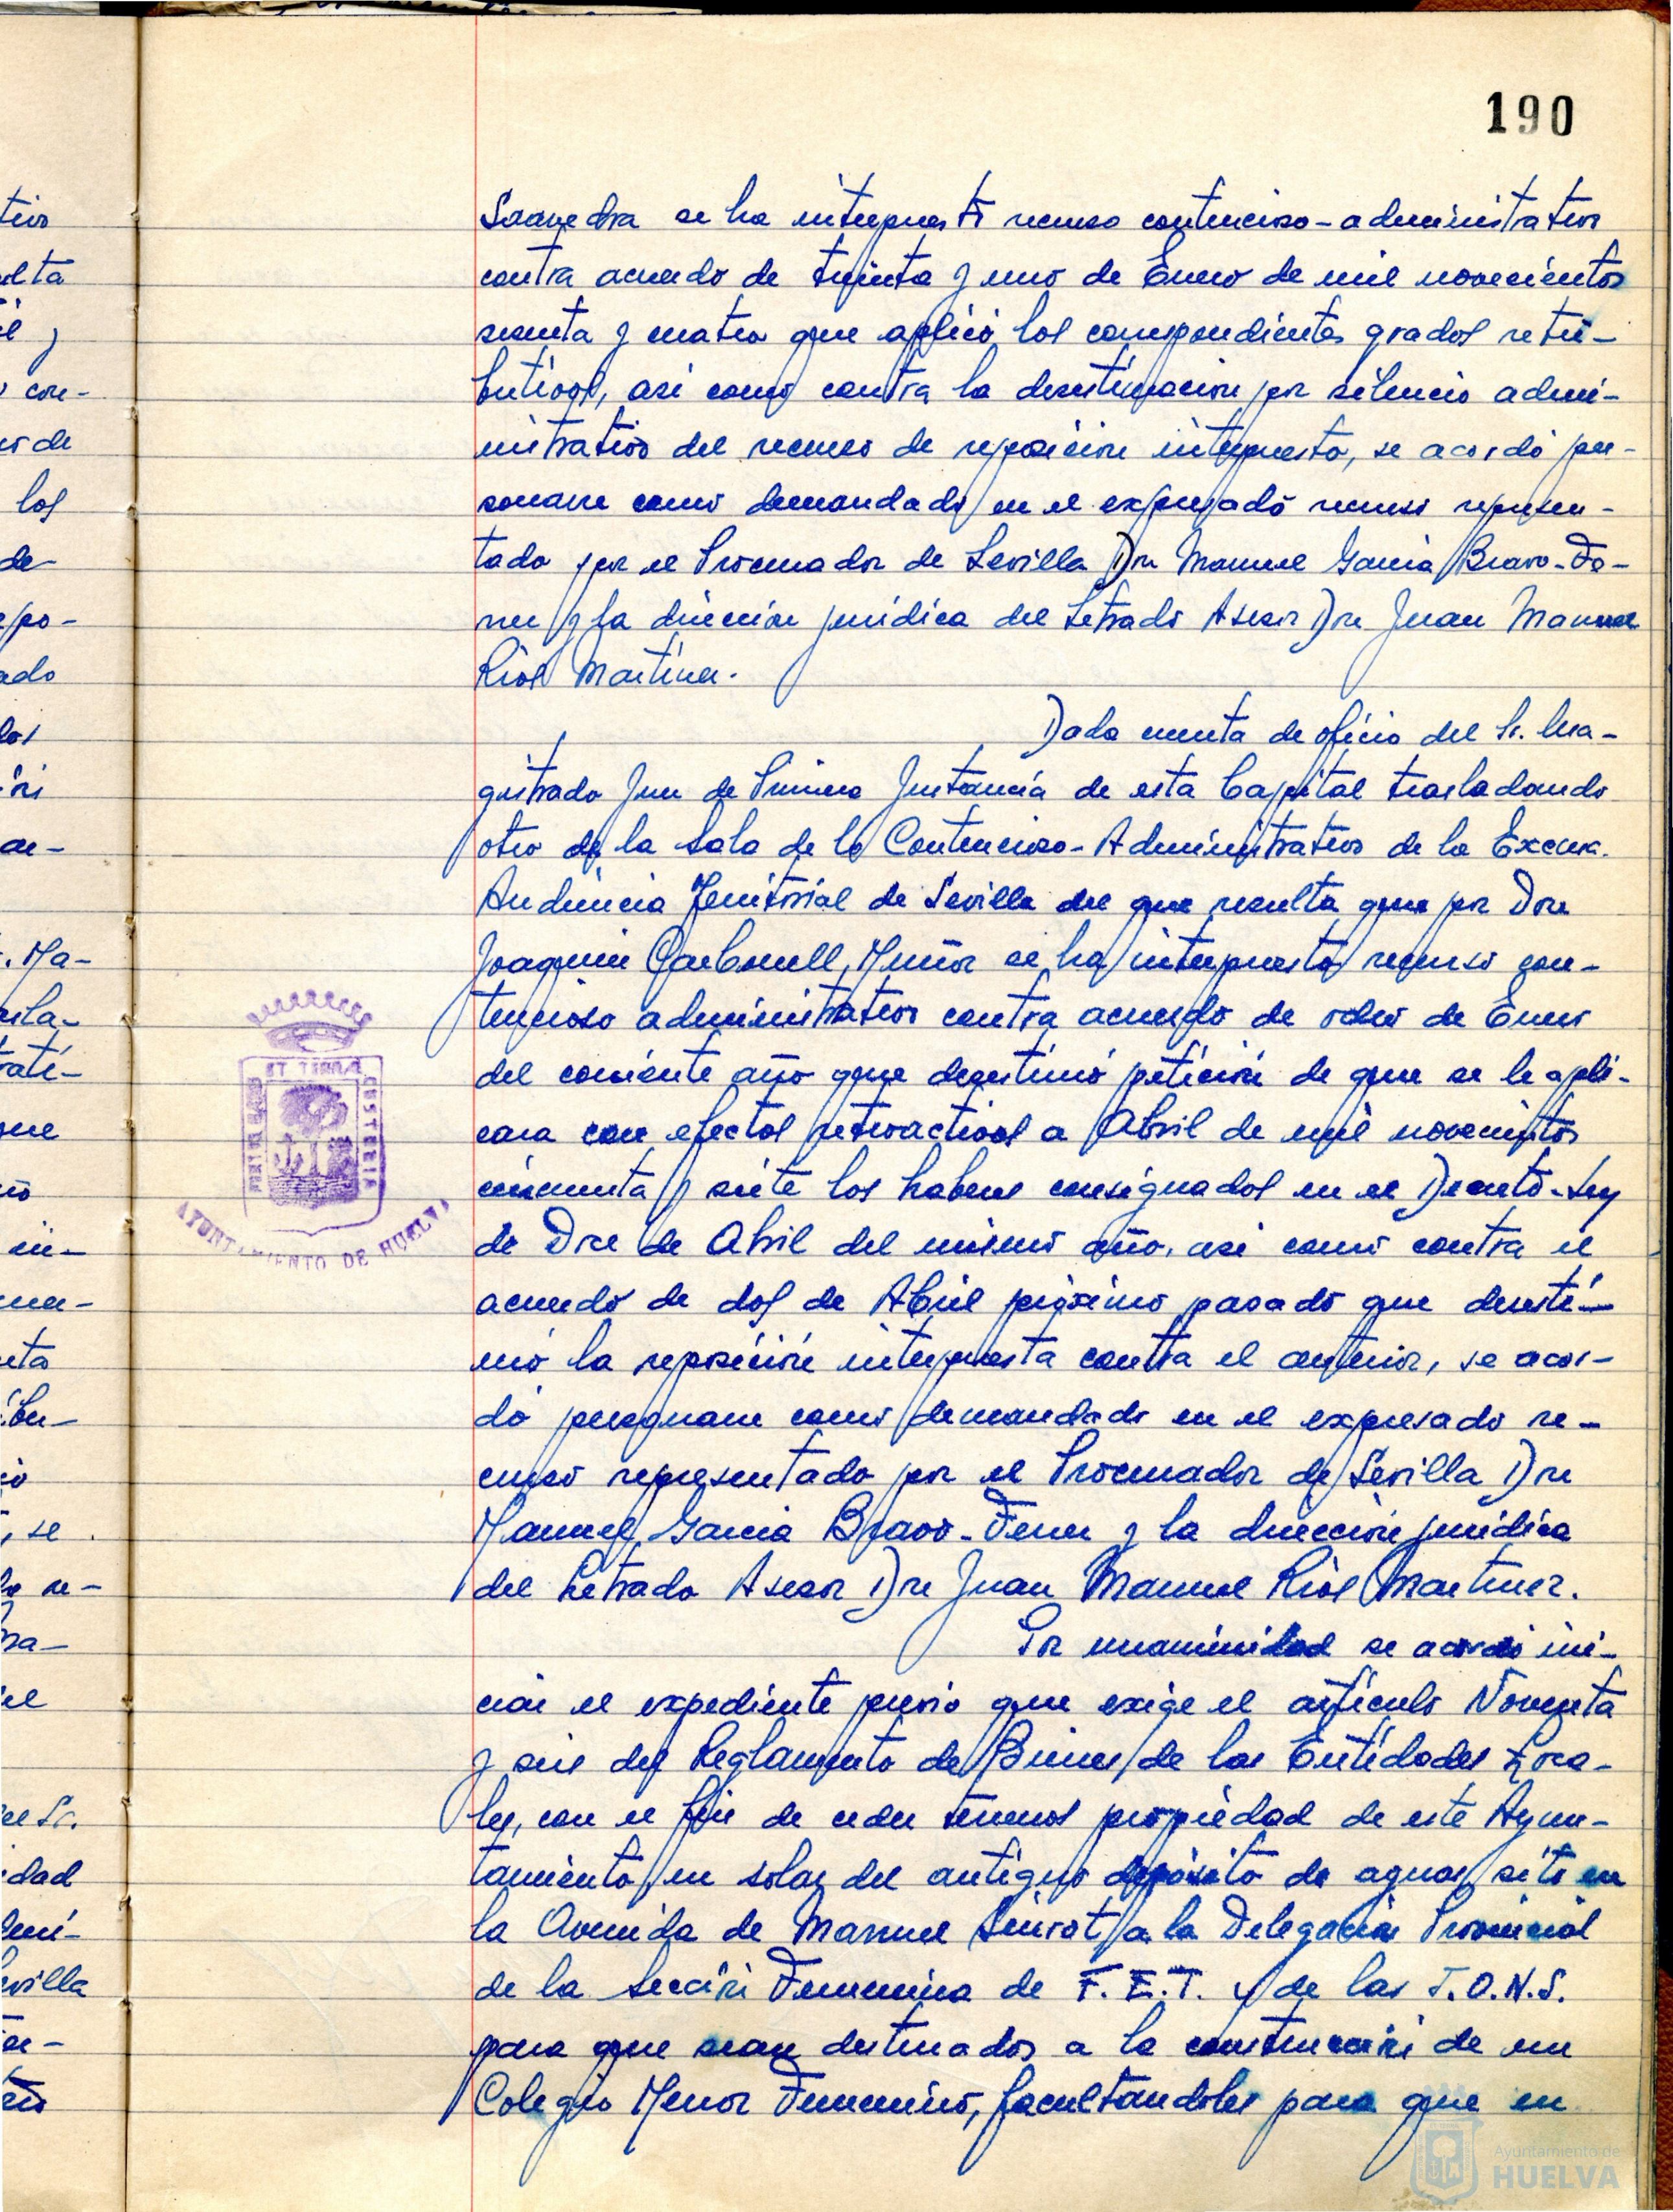 190
Saavedra se ha interpuesto recurso contencioso-administrativo
contra acuerdo de treinta y uno de Enero de mil novecientos
sesenta y cuatro que aplicó los correspondientes grados retri-
butivos, asi como contra la desestimación por silencio admi-
nistrativo del recurso de reposición interpuesto, se acordó per-
sonarse como demandado en el expresado recurso represen-
tado por el Procurador de Sevilla Don Manuel Garcia Bravo-Fe-
rrer y la dirección juridica del Letrado Asesor Don Juan Manuel
Rios Martinez.
Dada cuenta de oficio del Sr. Ma-
gistrado Juez de Primera Instancia de esta Capital trasladando
otro de la Sala de lo Contencioso-Administrativo de la Excma.
Audiencia Territorial de Sevilla del que resulta que por Don
Joaquin Carbonell Muñoz se ha interpuesto recurso con-
tencioso administrativo contra acuerdo de ocho de Enero
del corriente año que desestimó petición de que se le apli-
cara con efectos retroactivos a Abril de mil novecientos
cincuenta y siete los haberes consignados en el Decreto-Ley
de Doce de Abril del mismo año, asi como contra el
acuerdo de dos de Abril próximo pasado que desesti-
mó la reposición interpuesta contra el anterior, se acor-
dó personarse como demandado en el expresado re-
curso representado por el Procurador de Sevilla Don
Manuel Garcia Bravo-Ferrer y la dirección juridica
del Letrado Asesor Don Juan Manuel Rios Martinez.
Por unanimidad se acordó ini-
ciar el expediente previo que exige el artículo Noventa
y seis del Reglamento de Bienes de las Entidades Loca-
les, con el fin de ceder terrenos propiedad de este Ayun-
tamiento, en solar del antiguo depósito de aguas, sito en
la Avenida de Manuel Siurot, a la Delegación Provincial
de la Sección Femenina de F.E.T. y de las J.O.N.S.
para que sean destinados a la construcción de un
Colegio Menor Femenino, facultandoles para que en
ET TERRAE
CUSTODIA
AYUNTAMIENTO DE HUELVA
Ayuntamiento de
HUELVA